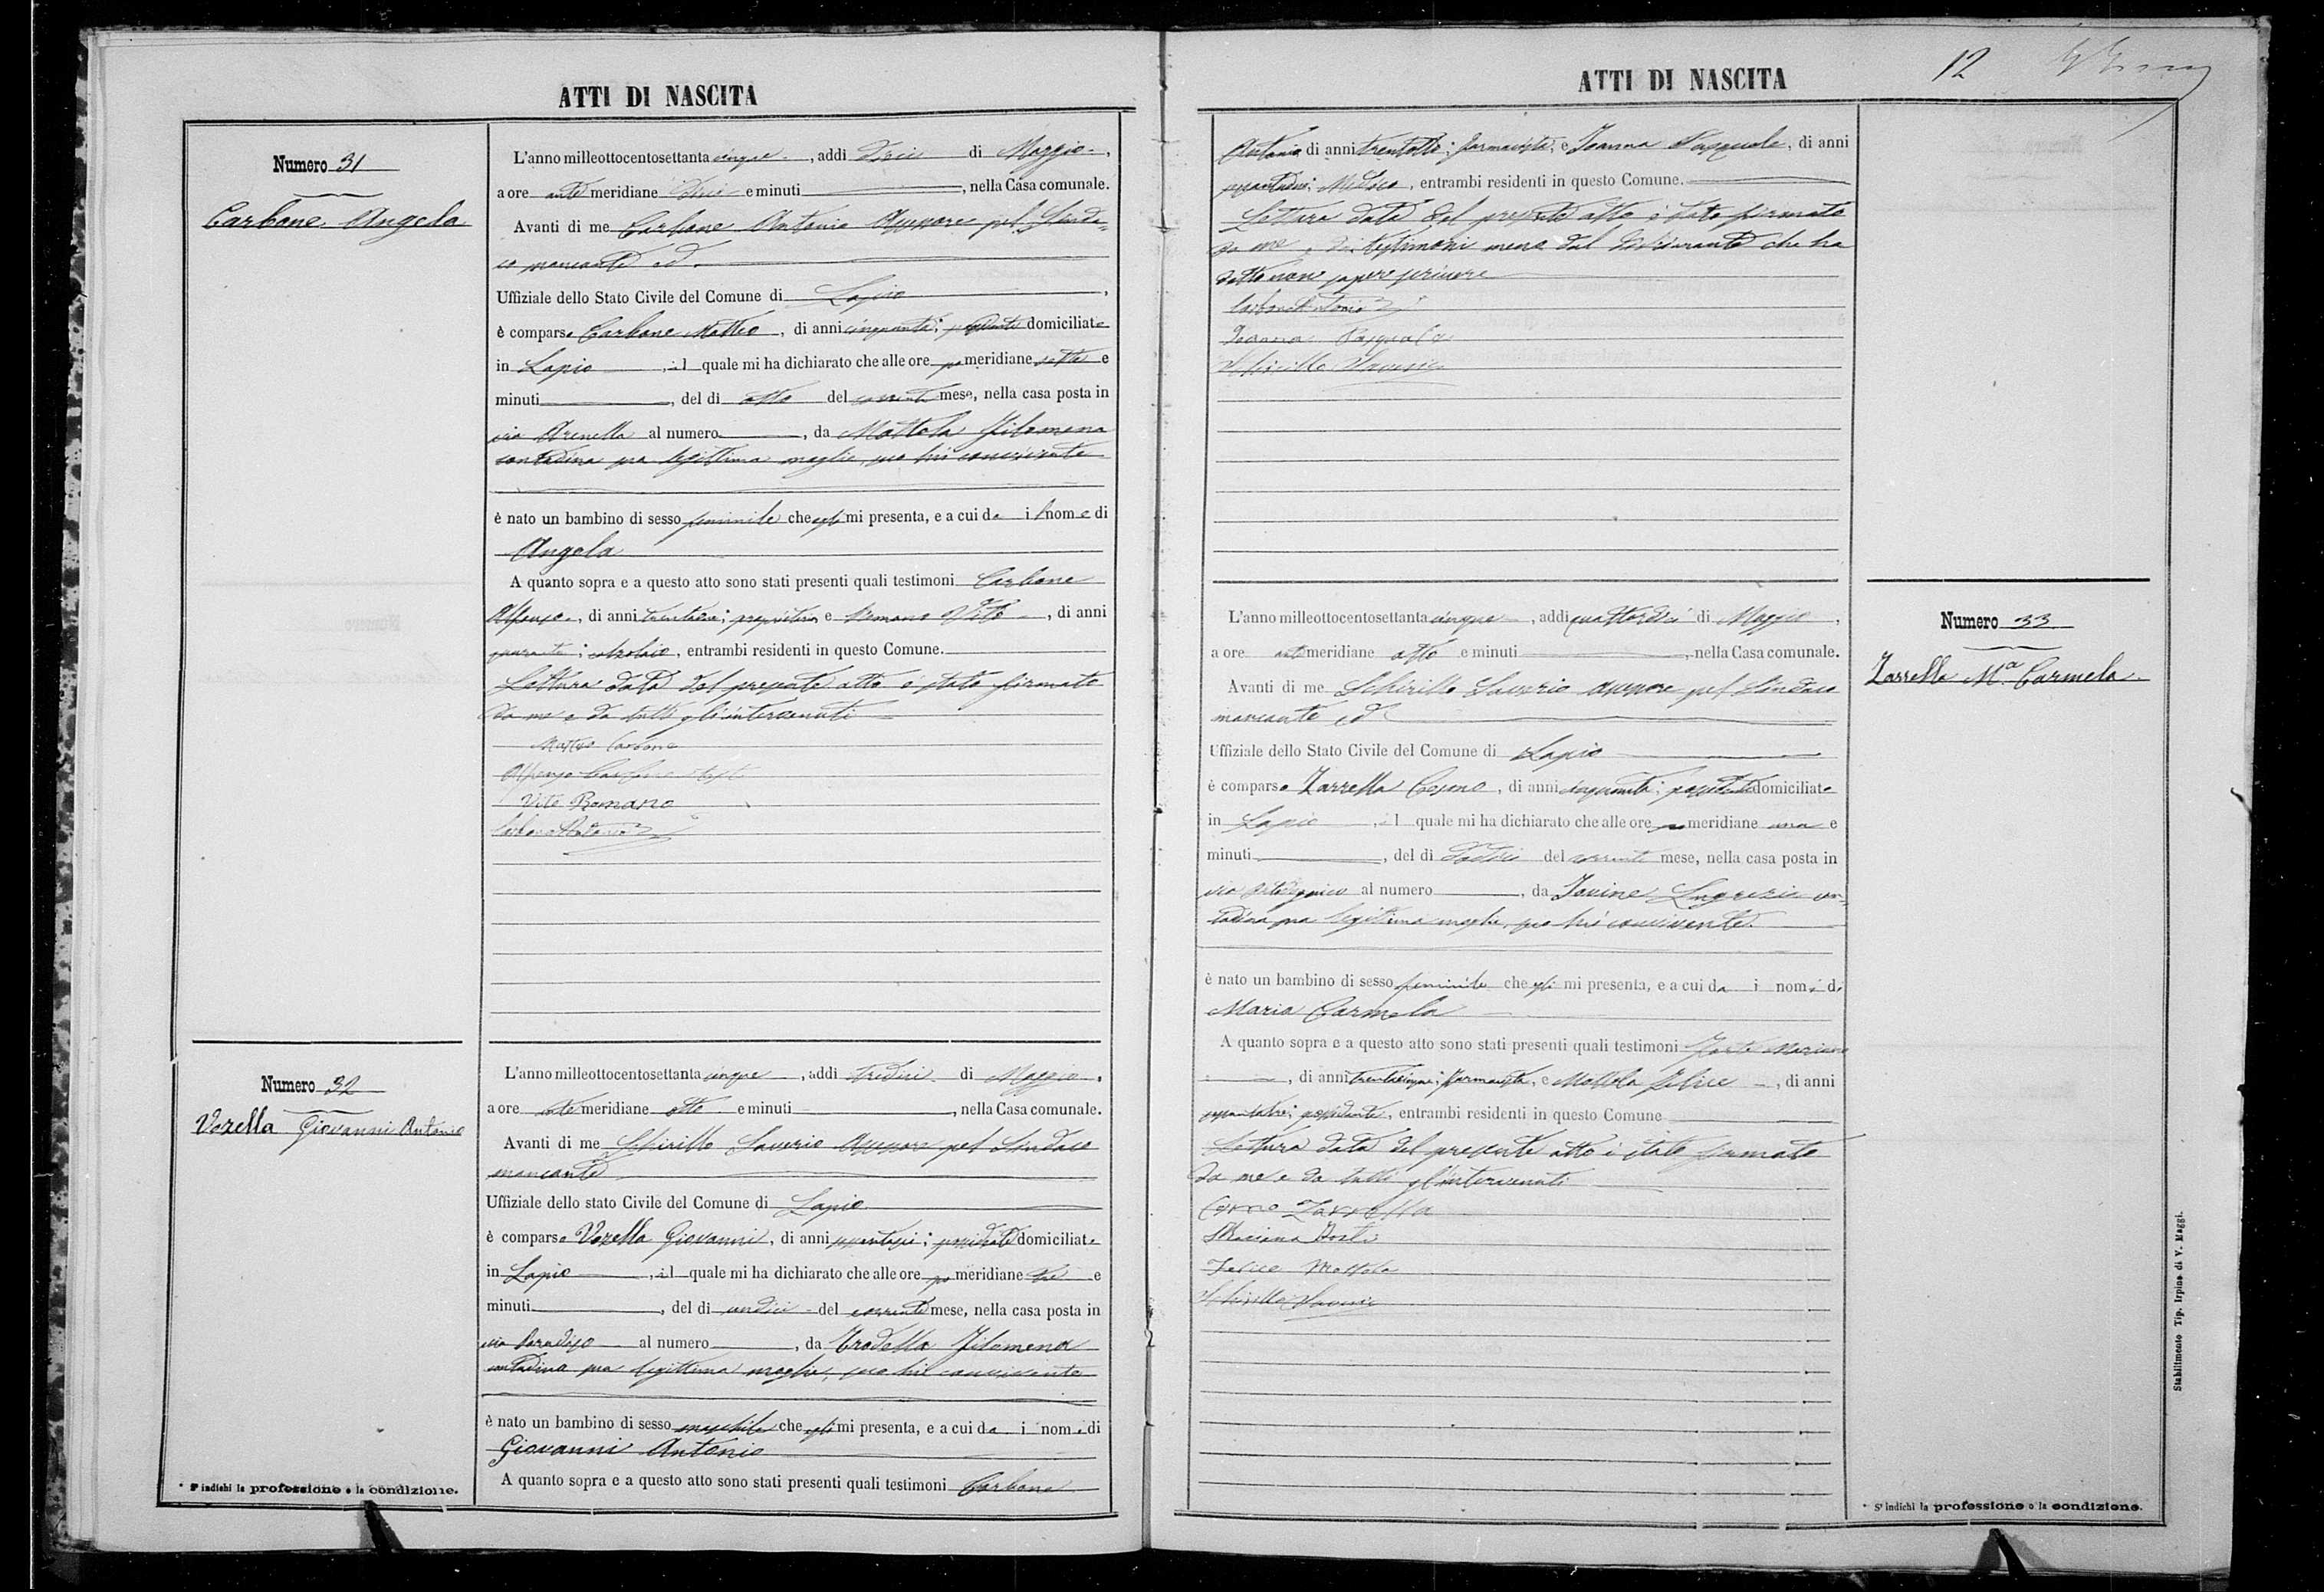 ATTI DI NASCITA
Numero 31
Carbone Angela
L'anno milleottocentosettanta cinque, addì dieci di Maggio,
a ore ante meridiane dieci e minuti , nella Casa comunale.
Avanti di me Carbone Antonio Assessore pel Sinda-
co mancante ed
Uffiziale dello Stato Civile del Comune di Lapio,
è comparso Carbone Matteo, di anni cinquanta; possidente domiciliato
in Lapio, il quale mi ha dichiarato che alle ore po meridiane sette e
minuti , del dì otto del corrente mese, nella casa posta in
via Arenella al numero , da Mottola Filomena
contadina sua legittima moglie, seco lui convivente
è nato un bambino di sesso feminile che egli mi presenta, e a cui da il nome di
Angela
A quanto sopra e a questo atto sono stati presenti quali testimoni Carbone
Alfonso, di anni ; proprietario, e Romano Vito, di anni
quaranta; calzolaio, entrambi residenti in questo Comune.
Lettura data del presente atto è stato firmato
da me e da tutti gl'intervenuti
Matteo Carbone
Alfonso Carbone
Vito Romano
Carbone Antonio
Numero 32
Vozella Giovanni Antonio
L'anno milleottocentosettanta cinque, addì tredici di Maggio,
a ore ante meridiane otto e minuti , nella Casa comunale.
Avanti di me Schirillo Saverio Assessore pel Sindaco
mancante
Uffiziale dello stato Civile del Comune di Lapio
è comparso Vozella Giovanni, di anni ; possidente domiciliato
in Lapio, il quale mi ha dichiarato che alle ore po meridiane tre e
minuti , del dì undici del corrente mese, nella casa posta in
via Paradiso al numero , da Trodella Filomena
contadina sua legittima moglie, seco lui convivente
è nato un bambino di sesso maschile che egli mi presenta, e a cui da i nomi di
Giovanni Antonio
A quanto sopra e a questo atto sono stati presenti quali testimoni Carbone
* S' indichi la professione o la condizione.
ATTI DI NASCITA
12
Antonio di anni trentotto; farmacista, e Ioanna Pasquale, di anni
; Medico, entrambi residenti in questo Comune.
Lettura data del presente atto è stato firmato
da me, dai testimoni meno dal dichiarante che ha
detto non sapere scrivere
Carbone Antonio
Ioanna Pasquale
Schirillo Saverio
Numero 33
Zarrella Mª Carmela
L'anno milleottocentosettanta cinque, addì quattordici di Maggio,
a ore ante meridiane otto e minuti , nella Casa comunale.
Avanti di me Schirillo Saverio Assessore pel Sindaco
mancante ed
Uffiziale dello Stato Civile del Comune di Lapio
è comparso Zarrella Cosmo, di anni cinquanta; possidente domiciliato
in Lapio, il quale mi ha dichiarato che alle ore po meridiane una e
minuti , del dì dodici del corrente mese, nella casa posta in
via al numero , da Iovine Lugrezia con-
tadina sua legittima moglie, seco lui convivente
è nato un bambino di sesso feminile che egli mi presenta, e a cui da i nomi di
Maria Carmela
A quanto sopra e a questo atto sono stati presenti quali testimoni Forte Mariano
, di anni trentacinque; farmacista, e Mottola Felice, di anni
; possidente, entrambi residenti in questo Comune
Lettura data del presente atto è stato firmato
da me e da tutti gl'intervenuti
Cosmo Zarrella
Mariano Forte
Felice Mottola
Schirillo Saverio
* S' indichi la professione o la condizione.
Stabilimento Tip. Irpino di V. Maggi.